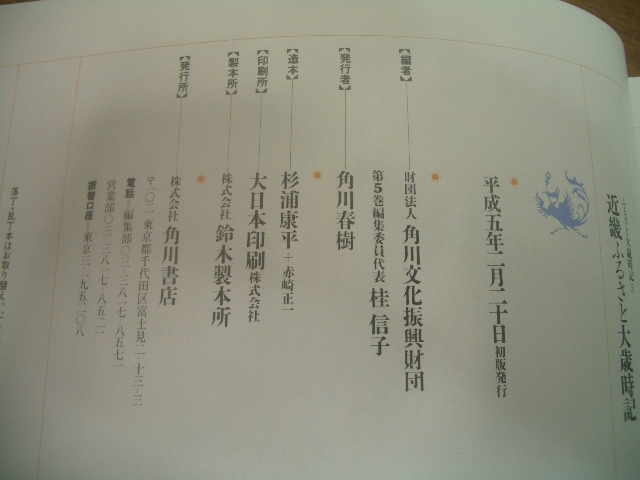 近畿ふるさと大歳時記
平成五年二月二十日 初版発行
【編者】
財団法人 角川文化振興財団
第5巻編集委員代表 桂 信子
【発行者】
角川春樹
【造本】
杉浦康平＋赤崎正一
【印刷所】
大日本印刷株式会社
【製本所】
株式会社 鈴木製本所
【発行所】
株式会社 角川書店
〒一〇二 東京都千代田区富士見二-十三-三
電話＝編集部〇三-三八一七-八五七一
営業部〇三-三八一七-八五二一
振替口座＝東京三-一九五二〇八
落丁・乱丁本はお取り替え